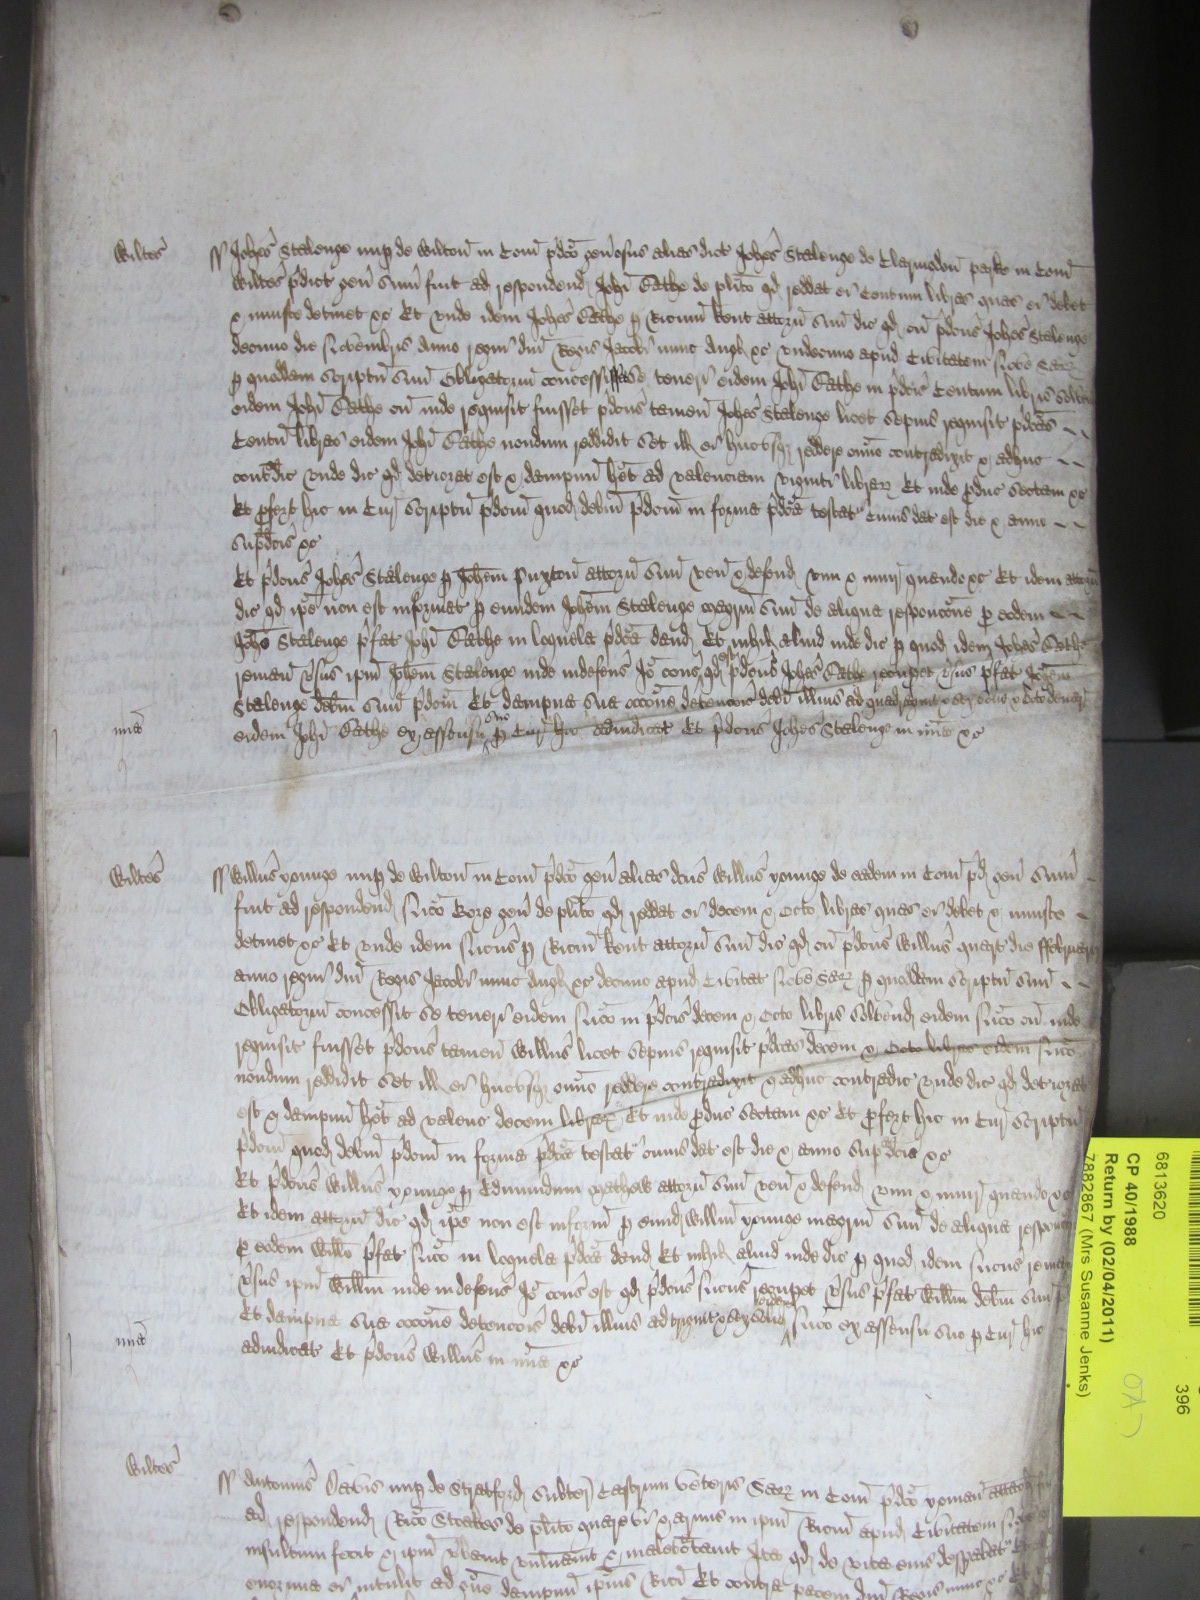 Wiltes
Joh̃es Stalenge nup de Wilton in Com̃ p̃dco gen̄osus alias dict Joh̃es Stalenge de Clarindon parke in Com̃
Wiltes p̃dict gen̄ sum̃ fuit ad respondend Joh̃i Bathe de pl̃ito qd reddat ei Centum libras quas ei debet
& iniuste detinet &c Et unde idem Joh̃es Bathe p Ricum Kent attorñ suũ dic qd cũ p̃dcus Joh̃es Stalenge
decimo die Novembris Anno regni dñi Regis Jacobi nunc Angl &c undecimo apud Civitatem Nove Sarz
p quoddam scriptũ suũ Obligatoriũ concessisset se teneri eidem Joh̃i Bathe in p̃dcis Centum libris solvend
eidem Joh̃i Bathe cũ inde requisit fuisset p̃dcus tamen Joh̃es Stalenge licet sepius requisit p̃dcas
Centũ libras eidem Joh̃i Bathe nondum reddidit set ill ei hucusq reddere om̃ino contradixit & adhuc
contradic unde dic qd deteriorat est & dampnũ het ad valenciam viginti librarz Et inde p̃duc sectam &c
Et p̃fert hic in Cur scriptũ p̃dcm̃ quod debitũ p̃dcm̃ in forma p̃dca testat̃ cuius dat est die & anno
sup̃dcis &c
Et p̃dcus Joh̃es Stalenge p Joh̃em attorñ suũ veñ & defend vim & iniur quando &c Et idem attorñ
dic qd ip̃e non est informat p eundem Joh̃em Stalenge magr̃m suũ de aliqua responc̃one p eodem
Joh̃e Stalenge p̃fat Joh̃i Bathe in loquela p̃dca dand Et nihil aliud inde dic p quod idem Joh̃es Bathe
remañ ṽsus ip̃m Joh̃em Stalenge inde indefens Iõ cons est qd p̃dcus Joh̃es Bathe recupet ṽsus p̃fat Joh̃em
Stalenge debitũ suũ p̃dcm̃ Et dampna sua occõne detencõis debi illius ad
eidem Joh̃i Bathe ex assensu suo p Cur hic adiudicat Et p̃dcus Joh̃es Stalenge in mĩa &c
mĩa
Wiltes
Willũs Younge nup de Wilton in Com̃ p̃dco gen̄ alias dcus Willũs Younge de eadem in Com̃ p̃d gen̄ sum̃
fuit ad respondend Nic̃o Bore gen̄ de pl̃ito qd reddat ei decem & Octo libras quas ei debet & iniuste
detinet &c Et unde idem Nic̃us p Ricum Kent attorñ suũ dic qd cũ p̃dcus Willũs quart die ffebruarij
anno regni dñi Regis Jacobi nunc Angl &c decimo apud Civitat Nove Sarz p quoddam scriptũ suũ
Obligatoriũ concessit se teneri eidem Nic̃o in p̃dcis decem & Octo libris solvend eidem Nic̃o cũ inde
requisit fuisset p̃dcus tamen Willũs licet sepius requisit p̃dcas decem & Octo libras eidem Nic̃o
nondum reddidit set ill ei hucusq om̃ino reddere contradixit & adhuc contradic unde dic qd deteriorat
est & dampnũ het ad valenc decem librarz Et inde p̃duc sectam &c Et p̃fert hic in Cur scriptũ
p̃dcm̃ quod debitũ p̃dcm̃ in forma p̃dca testat̃ cuius dat est die & anno sup̃dcis &c
Et p̃dcus Willũs Younge p Edmundum Mathew attorñ suũ veñ & defend vim & iniur quando &c
Et idem attorñ dic qd ip̃e non est inform̃ p eund Willm̃ Younge magr̃m suũ de aliqua respon
p eodem Will̃o p̃fat Nic̃o in loquela p̃dca dand Et nihil aliud inde dic p quod idem Nic̃us remañ
ṽsus ip̃m Willm̃ inde indefens Iõ cons est qd p̃dcus Nic̃us recupet ṽsus p̃fat Willm̃ debitũ suũ
Et dampna sua occõne detencõis debi illius ad trigint & sex solid eidem Nic̃o ex assensu suo p Cur hic
adiudicat Et p̃dcus Willũs in mĩa &c
mĩa
Wiltes
Antonius Davis nup de Stratford subter Castrum veteris Sarz in Com̃ p̃dco yoman attach
ad respondend Ric̃o Stoakes de pl̃ito quare vi & armis in ip̃m Ricum apud Civitatem
insultum fecit & ip̃m ṽberavit vuln̄avit & maletractavit Ita qd de vita eius desp̃abat̃
enormia ei intulit ad g̃ve dampnũ ip̃ius Rici Et contra pacem dñi Regis nunc &c
6813620
CP 40/1988
Return by (02/04/2011)
78828867 (Mrs Susanne Jenks)
396